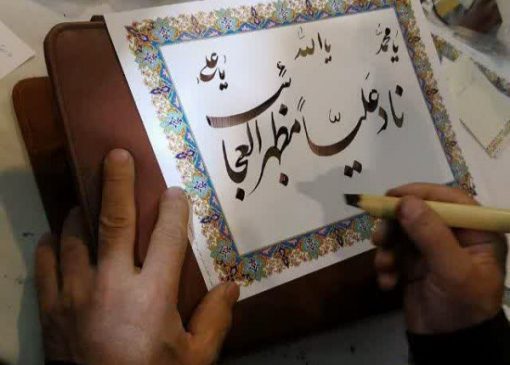 یا محمد یا الله یا علی
ناد علیاً مظهر العجائب